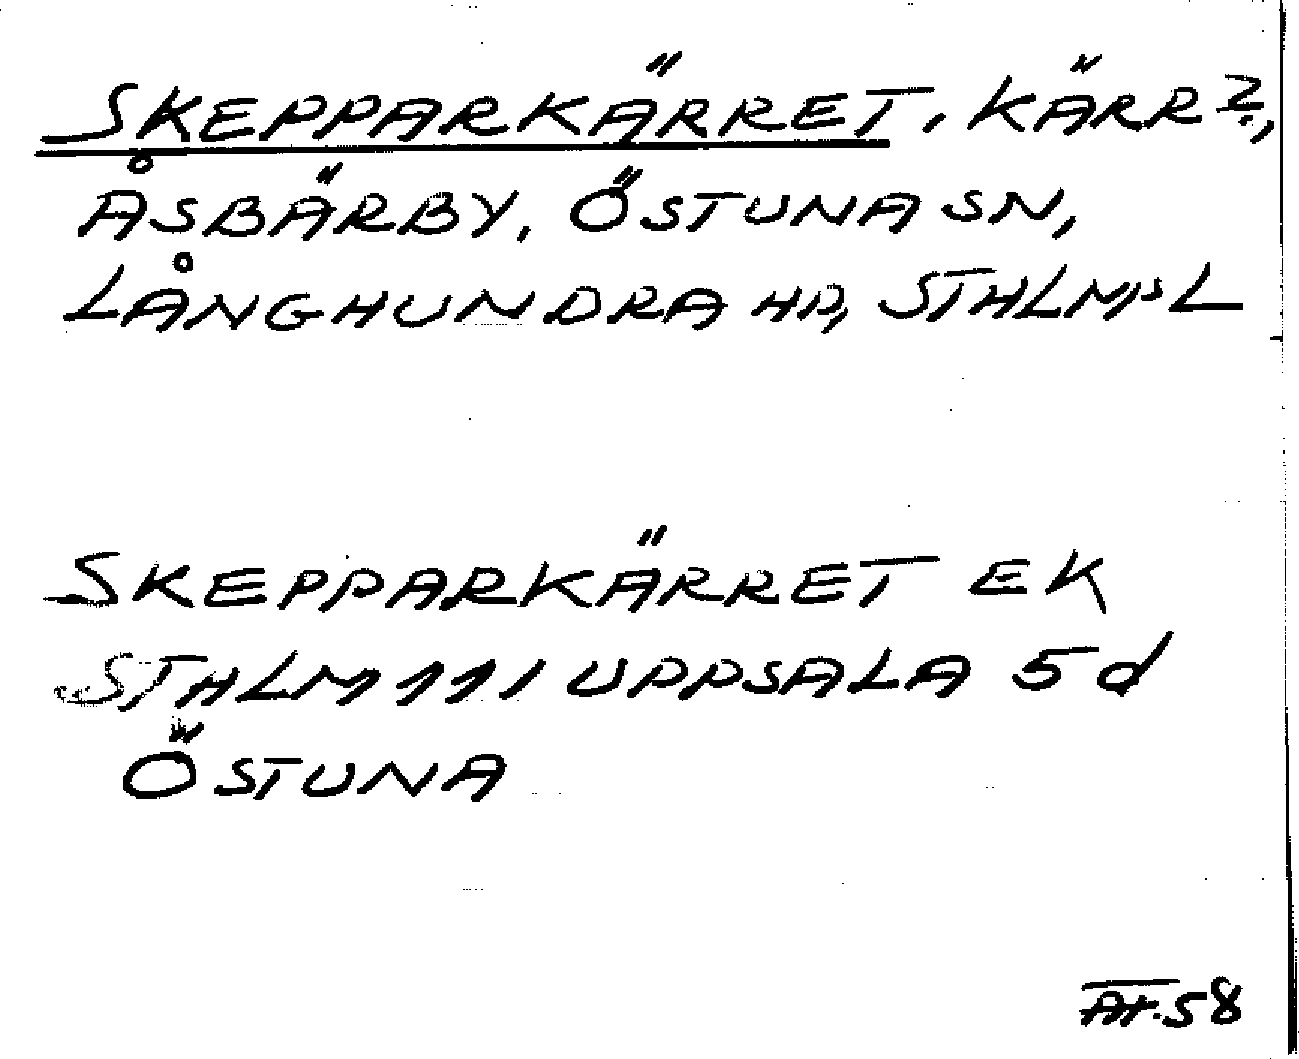 SKEPPARKÄRRET, KÄRR?,
ÅSBÄRBY, ÖSTUNA SN,
LÅNGHUNDRA HD, STHLMS L
SKEPPARKÄRRET EK
STHLM 111 UPPSALA 5d
ÖSTUNA
58